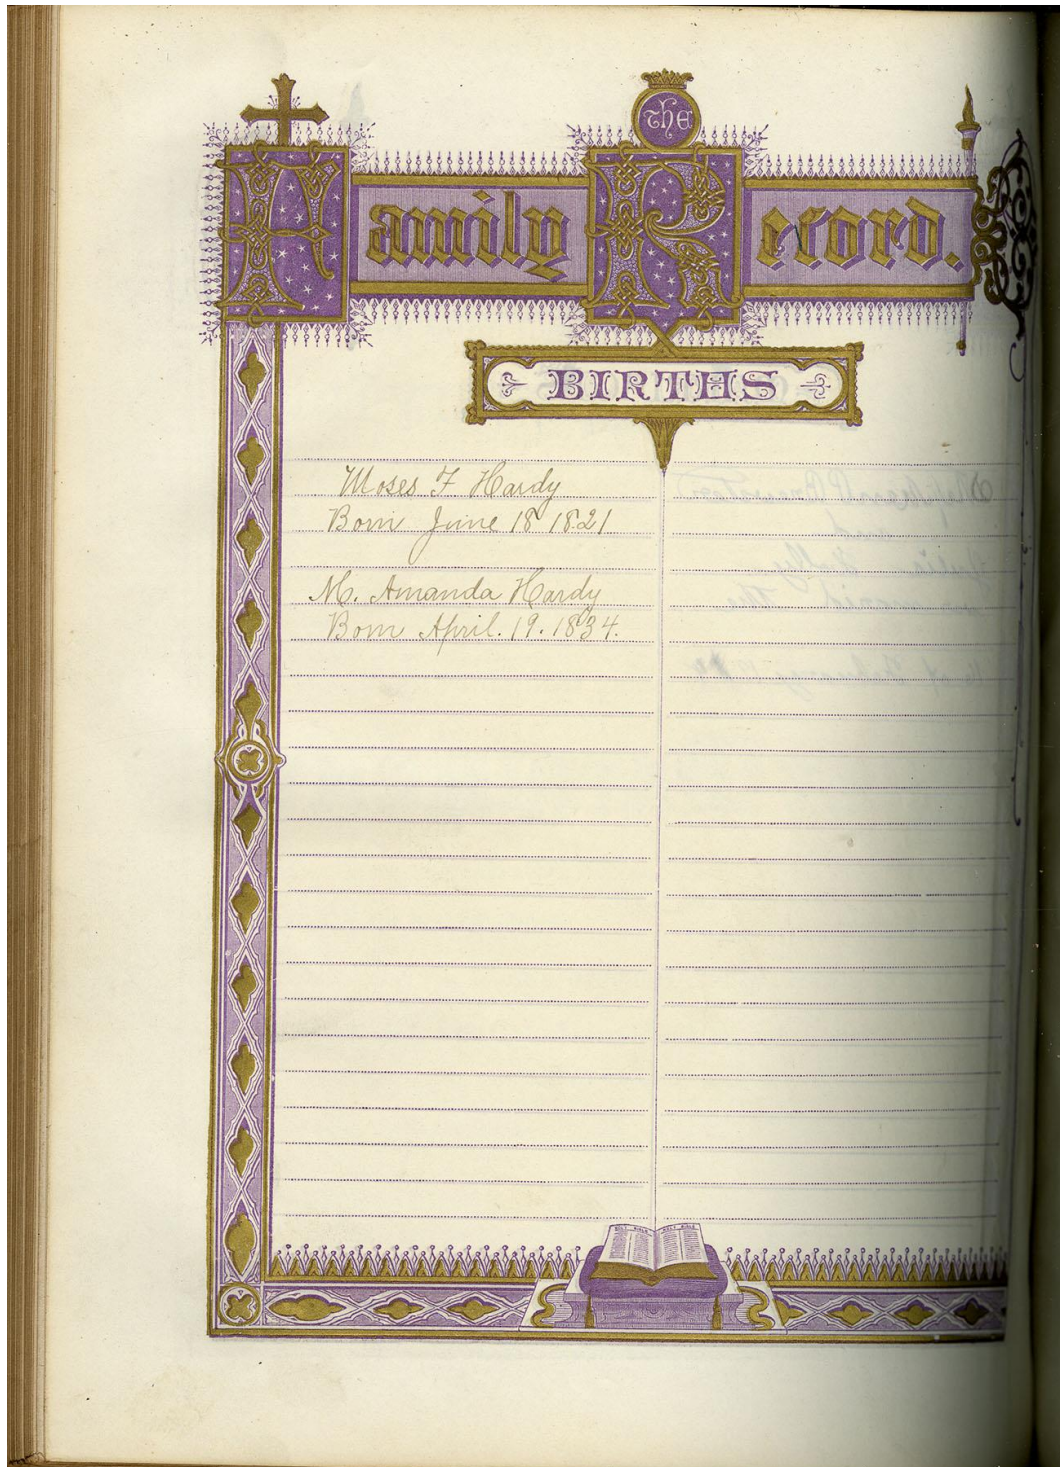 The
Family Record.
BIRTHS
Moses F Hardy
Born June 18 1821
M. Amanda Hardy
Born April. 19. 1834.
HOLY BIBLE HOLY BIBLE